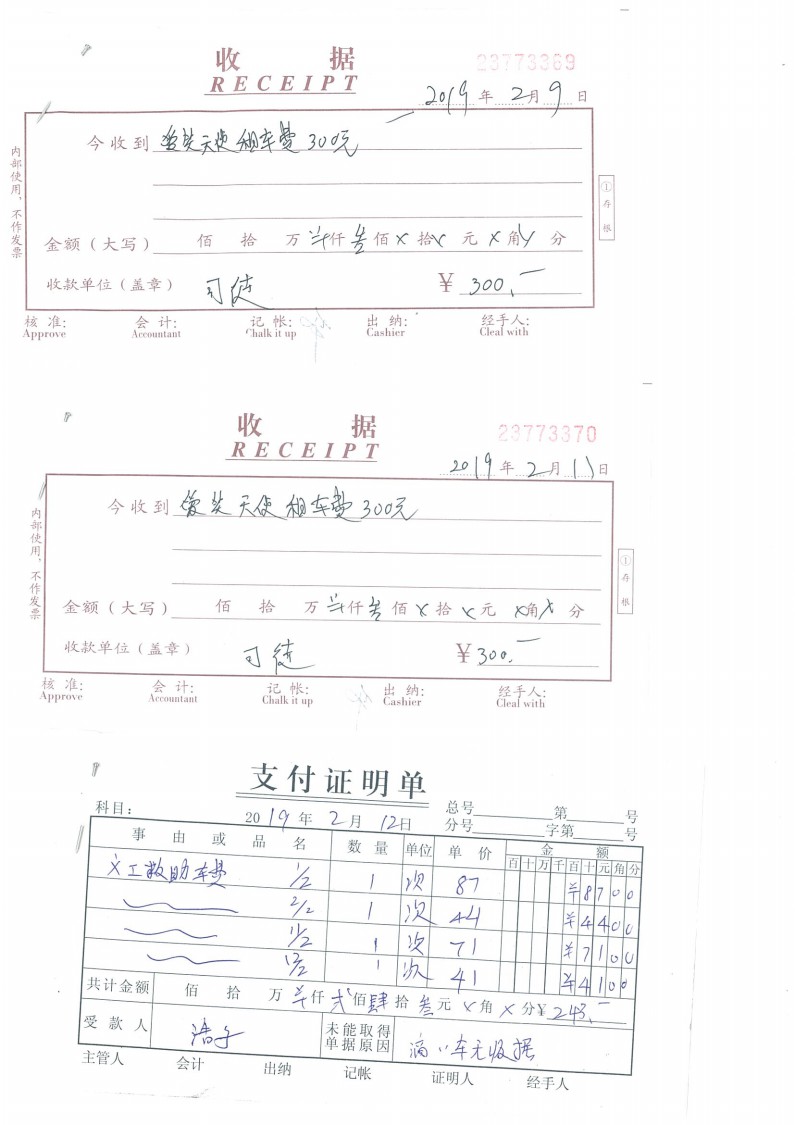 收 据
23773369
RECEIPT
2019 年 2 月 9 日
今收到 天使租车费300元
内部使用，不作发票
①存根
金额（大写） 佰 拾 万 仟 叁 佰 X 拾 X 元 X 角 X 分
收款单位（盖章） 司徒 ¥ 300.—
核 准: 会 计: 记 帐: 出 纳: 经手人:
Approve Accountant Chalk it up Cashier Cleal with
收 据
23773370
RECEIPT
2019 年 2 月 11 日
今收到 天使 租车费300元
内部使用，不作发票
①存根
金额（大写） 佰 拾 万 仟 叁 佰 X 拾 X 元 X 角 X 分
收款单位（盖章） 司徒 ¥ 300.—
核 准: 会 计: 记 帐: 出 纳: 经手人:
Approve Accountant Chalk it up Cashier Cleal with
支付证明单
科目: 2019 年 2 月 12 日 总号 第 号
分号 字第 号
事 由 或 品 名 数 量 单位 单 价 金 额
百 十 万 千 百 十 元 角 分
义工救助车费 1/2 1 次 87 ¥8700
2/2 1 次 44 ¥4400
11/2 1 次 71 ¥7100
12/2 1 次 41 ¥4100
共计金额 佰 拾 万 仟 贰 佰 肆 拾 叁 元 X 角 X 分 ¥ 243.—
受 款 人 浩子 未能取得单据原因 滴滴车无收据
主管人 会计 出纳 记帐 证明人 经手人